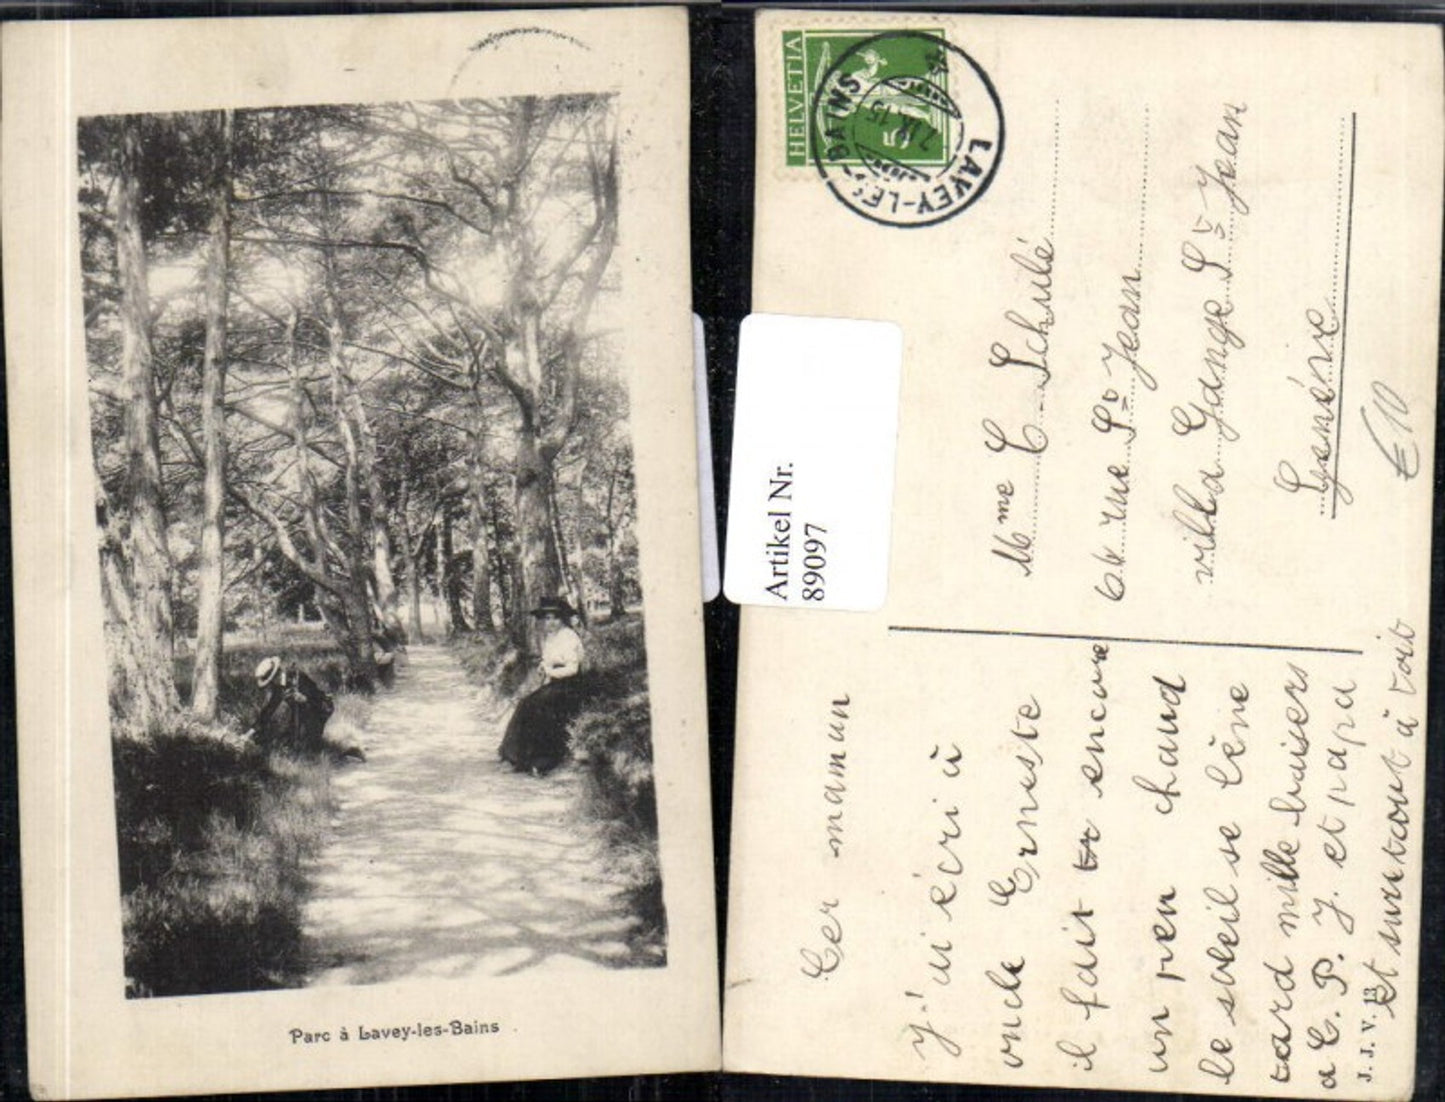 Parc à Lavey-les-Bains
HELVETIA
5
LAVEY-LES-BAINS
7.IX.15
Artikel Nr.
89097
Mme C Schulé
rue St Jean
villa Gange St Jean
Genéve
€10
Cer maman
J'ai écri à
oncle Erneste
il fait tr encore
un peu chaud
le soleil se lène
tard mille baisers
a C. P. J. et papa
et surtout à toi
J. J. V. 13